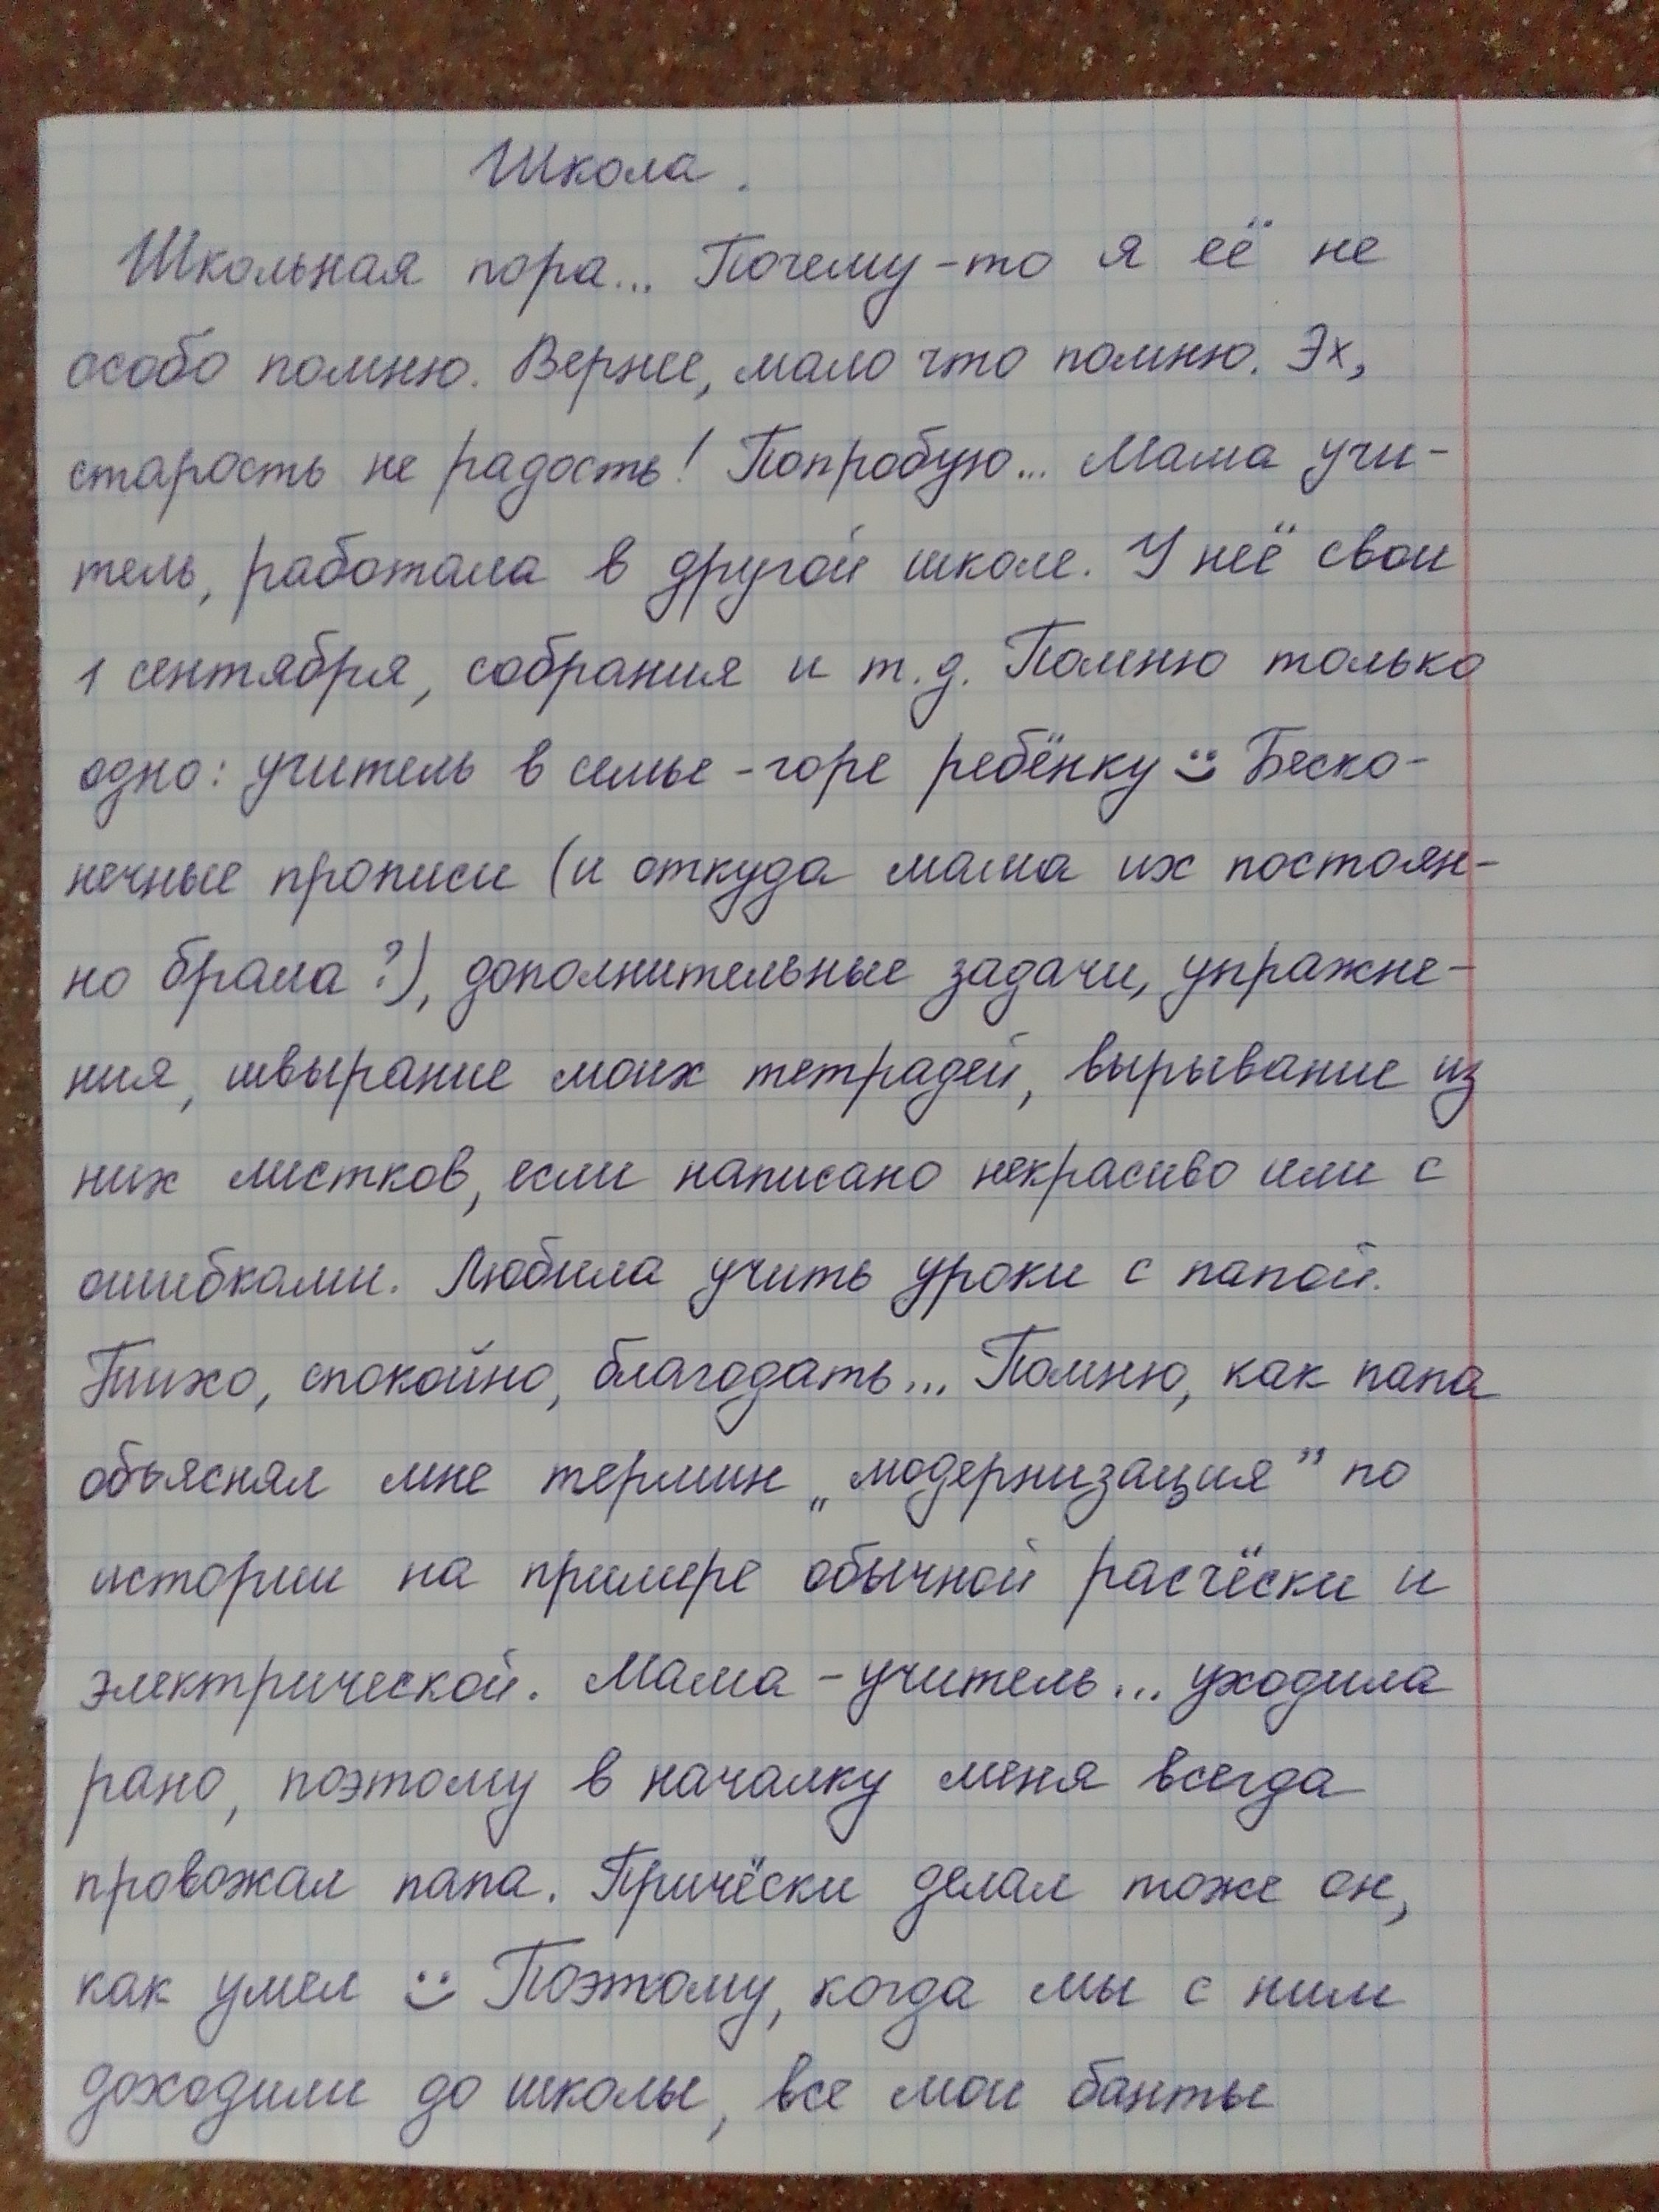 Школа.
Школьная пора... Почему-то я её не
особо помню. Вернее, мало что помню. Эх,
старость не радость! Попробую... Мама учи-
тель, работала в другой школе. У неё свои
1 сентября, собрания и т.д. Помню только
одно: учитель в семье - горе ребёнку :) Беско-
нечные прописи (и откуда мама их постоян-
но брала?), дополнительные задачи, упражне-
ния, швыряние моих тетрадей, вырывание из
них листков, если написано некрасиво или с
ошибками. Любила учить уроки с папой.
Тихо, спокойно, благодать... Помню, как папа
объяснял мне термин „модернизация” по
истории на примере обычной расчёски и
электрической. Мама - учитель... уходила
рано, поэтому в началку меня всегда
провожал папа. Причёски делал тоже он,
как умел :) Поэтому, когда мы с ним
доходили до школы, все мои банты